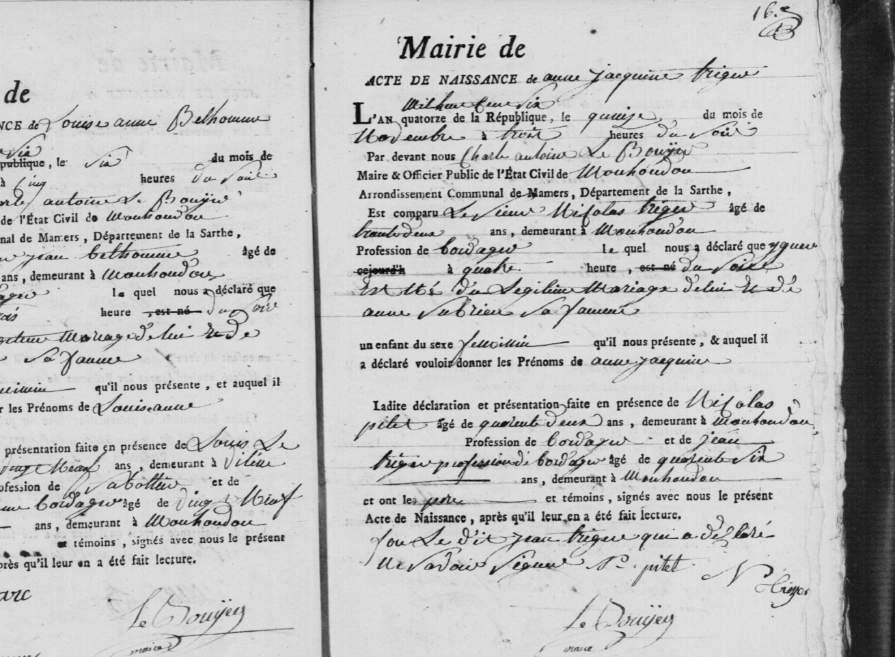 de
NCE de Louise anne Belhomme
publique, le six du mois de
à cinq heures du soir
antoine Le Bouÿer
de l'État Civil de Mouhoudou
nal de Mamers, Département de la Sarthe,
jean belhomme âgé de
ans, demeurant à Mouhoudou
Le quel nous a déclaré que
heure , est né du soir
mariage de lui et de
sa famme
qu'il nous présente, et auquel il
r les Prénoms de Louise anne
présentation faite en présence de Louis Le
ans, demeurant à
ofession de Sabottier et de
bordager âgé de
ans, demeurant à Mouhoudou
témoins, signés avec nous le présent
près qu'il leur en a été fait lecture.
arc
Le Bouÿer
maire
16.e
Mairie de
ACTE DE NAISSANCE de anne jacquine triger
Mil huit Cent Six
L'AN quatorze de la République, le quinze du mois de
Novembre à trois heures du Soir
Par devant nous Charle antoine Le Bouÿer
Maire & Officier Public de l'État Civil de Mouhoudou
Arrondissement Communal de Mamers, Département de la Sarthe,
Est comparu Le Sieur Nicolas triger âgé de
trante deux ans, demeurant à Mouhoudou
Profession de bordager Le quel nous a déclaré que
cejourd'h à quatre heure , est né du Soir
Est Né d'un Legitime Mariage de lui Et de
anne Subrieu Sa famme
un enfant du sexe feminin qu'il nous présente, & auquel il
a déclaré vouloir donner les Prénoms de anne jacquine
Ladite déclaration et présentation faite en présence de Nicolas
pitet âgé de quarente deux ans, demeurant à Mouhoudou
Profession de bordager et de jean
triger profession de bordager âgé de quarente Six
ans, demeurant à Mouhoudou
et ont les pere et témoins, signés avec nous le présent
Acte de Naissance, après qu'il leur en a été fait lecture.
fou Le dit jean triger qui a declaré
Ne Savoir Signer N. pitet
N triger
Le Bouÿer
maire